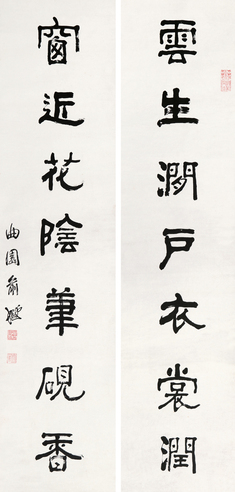 雲生澗戶衣裳潤
窗近花陰筆硯香
曲園俞樾